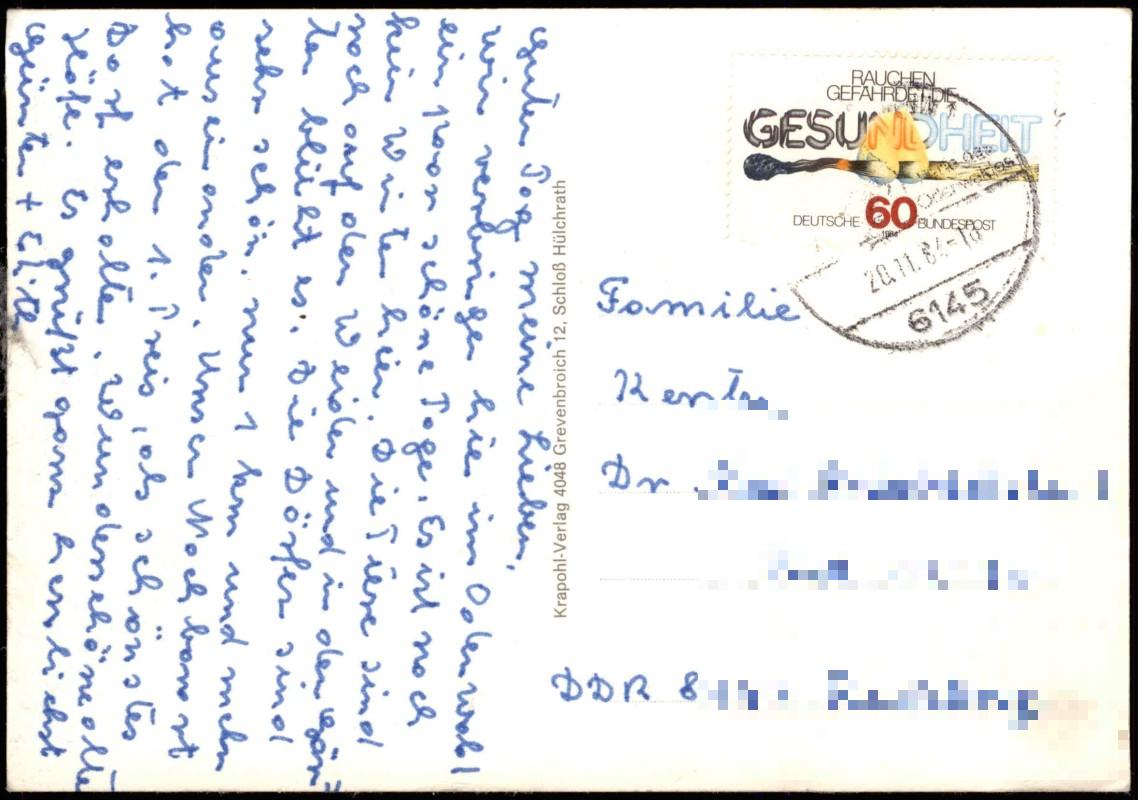 Guten Tag meine Lieben,
wir verbringen hier im Odenwald
ein paar schöne Tage. Es ist noch
kein Winter hier. Die Tiere sind
noch auf der Weide und in den Gär-
ten blüht es. Die Dörfer sind
sehr schön, nur 1 km und mehr
auseinander. Unser Nachbarort
hat den 1. Preis, als schönstes
Dorf erhalten. Wunderschöne alte
Höfe. Es grüßt ganz herzlichst
Günter + Edith
Krapohl-Verlag 4048 Grevenbroich 12, Schloß Hülchrath
RAUCHEN
GEFÄHRDET DIE
GESUNDHEIT
DEUTSCHE 60 BUNDESPOST
1984
20.11.84-18
6145
Familie
Dr
DDR 8